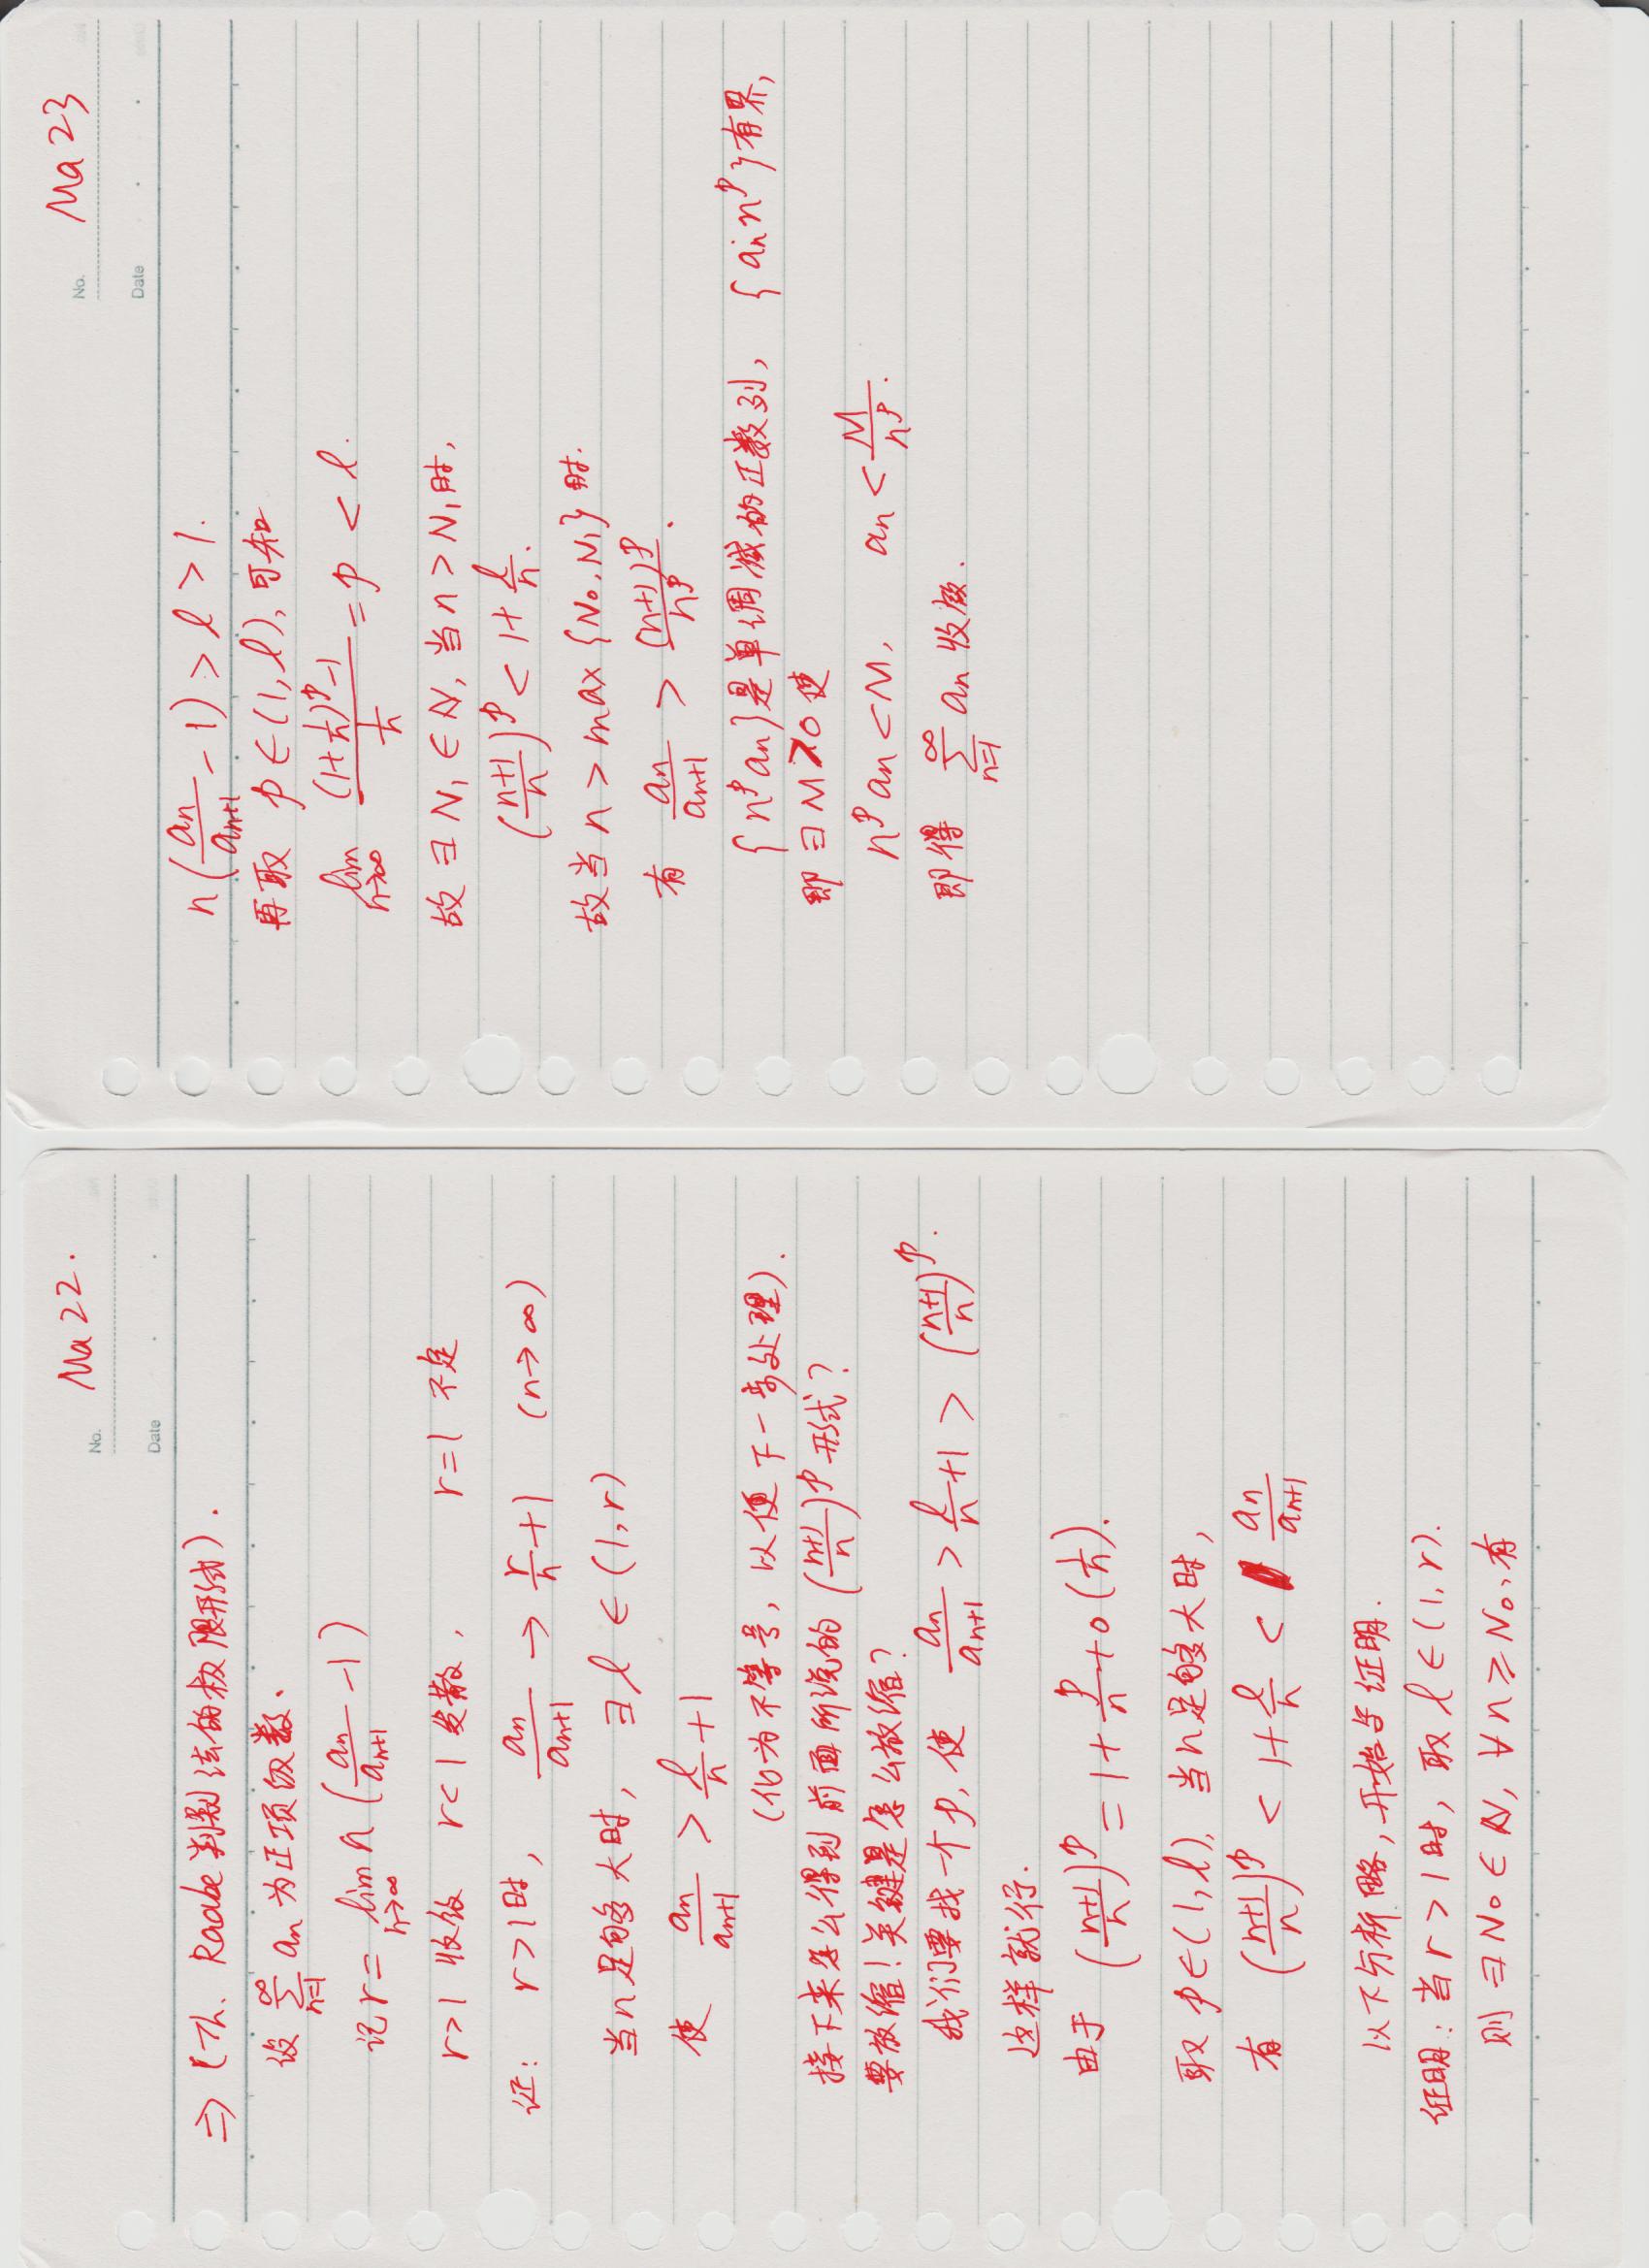 No. Ma 22.
Date
⇒ (Th. Raabe判别法的极限形式).
设 ∑_{n=1}^{∞} a_n 为正项级数.
记 r = lim_{n→∞} n (a_n/a_{n+1} - 1)
r>1 收敛 r<1 发散, r=1 不定
证: r>1时, a_n/a_{n+1} → r/n + 1 (n→∞)
当n足够大时, ∃ l ∈ (1, r)
使 a_n/a_{n+1} > l/n + 1
(化为不等号, 以便下一步处理).
接下来怎么得到前面所说的 ((n+1)/n)^p 形式?
要放缩! 关键是怎么放缩?
我们要找一个p, 使 a_n/a_{n+1} > l/n + 1 > ((n+1)/n)^p.
这样就行.
由于 ((n+1)/n)^p = 1 + p/n + o(1/n).
取 p∈(1, l), 当n足够大时,
有 ((n+1)/n)^p < 1 + l/n < a_n/a_{n+1}
以下分析略, 开始写证明.
证明: 当 r>1时, 取 l∈(1, r).
则 ∃ N₀ ∈ N, ∀ n ≥ N₀, 有
No. Ma 23
Date
n(a_n/a_{n+1} - 1) > l > 1.
再取 p∈(1, l), 可知
lim_{n→∞} ((1+1/n)^p - 1)/(1/n) = p < l.
故 ∃ N₁ ∈ N, 当 n > N₁时,
((n+1)/n)^p < 1 + l/n.
故当 n > max {N₀, N₁} 时.
有 a_n/a_{n+1} > (n+1)^p/n^p.
{n^p a_n}是单调减的正数列, {a_n n^p}有界,
即 ∃ M>0 使
n^p a_n < M, a_n < M/n^p.
即得 ∑_{n=1}^{∞} a_n 收敛.